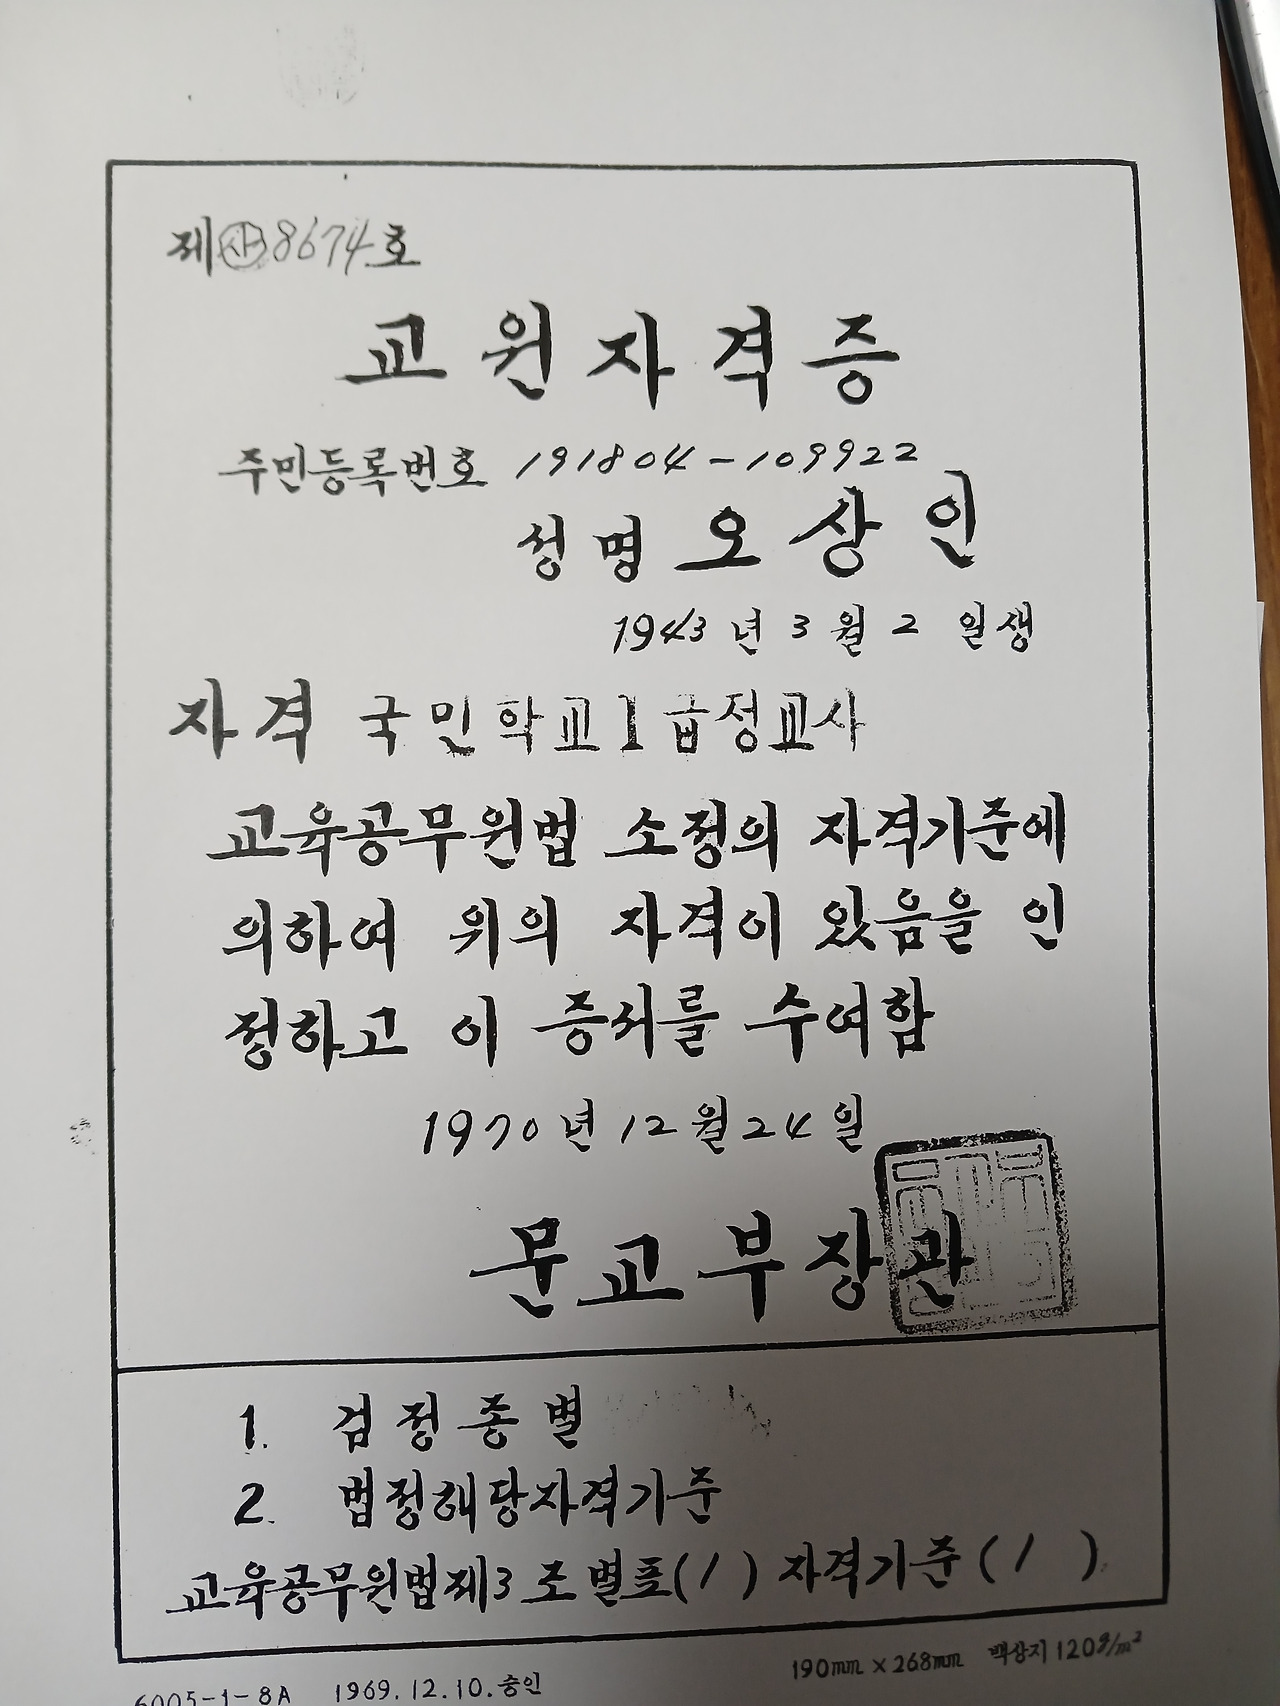 제 8674호
교원자격증
주민등록번호 191804-109922
성명 오상인
1943년 3월 2일생
자격 국민학교1급정교사
교육공무원법 소정의 자격기준에
의하여 위의 자격이 있음을 인
정하고 이 증서를 수여함
1970년 12월 24일
문교부장관
1. 검정종별
2. 법정해당자격기준
교육공무원법제3조별표(1) 자격기준(1)
190mm×268mm 백상지120g/m²
6005-1-8A 1969.12.10.승인